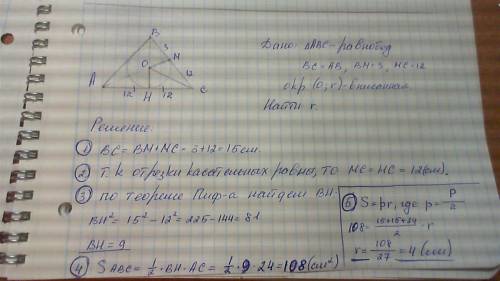 B
3
N
O
12
A
12
H
12
C
Дано: △ABC-равнобед
BC=AB, BN=3, NC=12
окр (O; r)-вписанная
Найти r.
Решение.
① BC=BN+NC=3+12=15см.
② т.к отрезки касательных равны, то NC=HC=12(см).
③ по теореме Пиф-а найдем BH.
BH²=15²-12²=225-144=81
BH=9
④ S ABC=½·BH·AC=½·9·24=108(см²)
⑤ S=pr, где p=P/2
108=15+15+24/2·r
r=108/27=4(см)